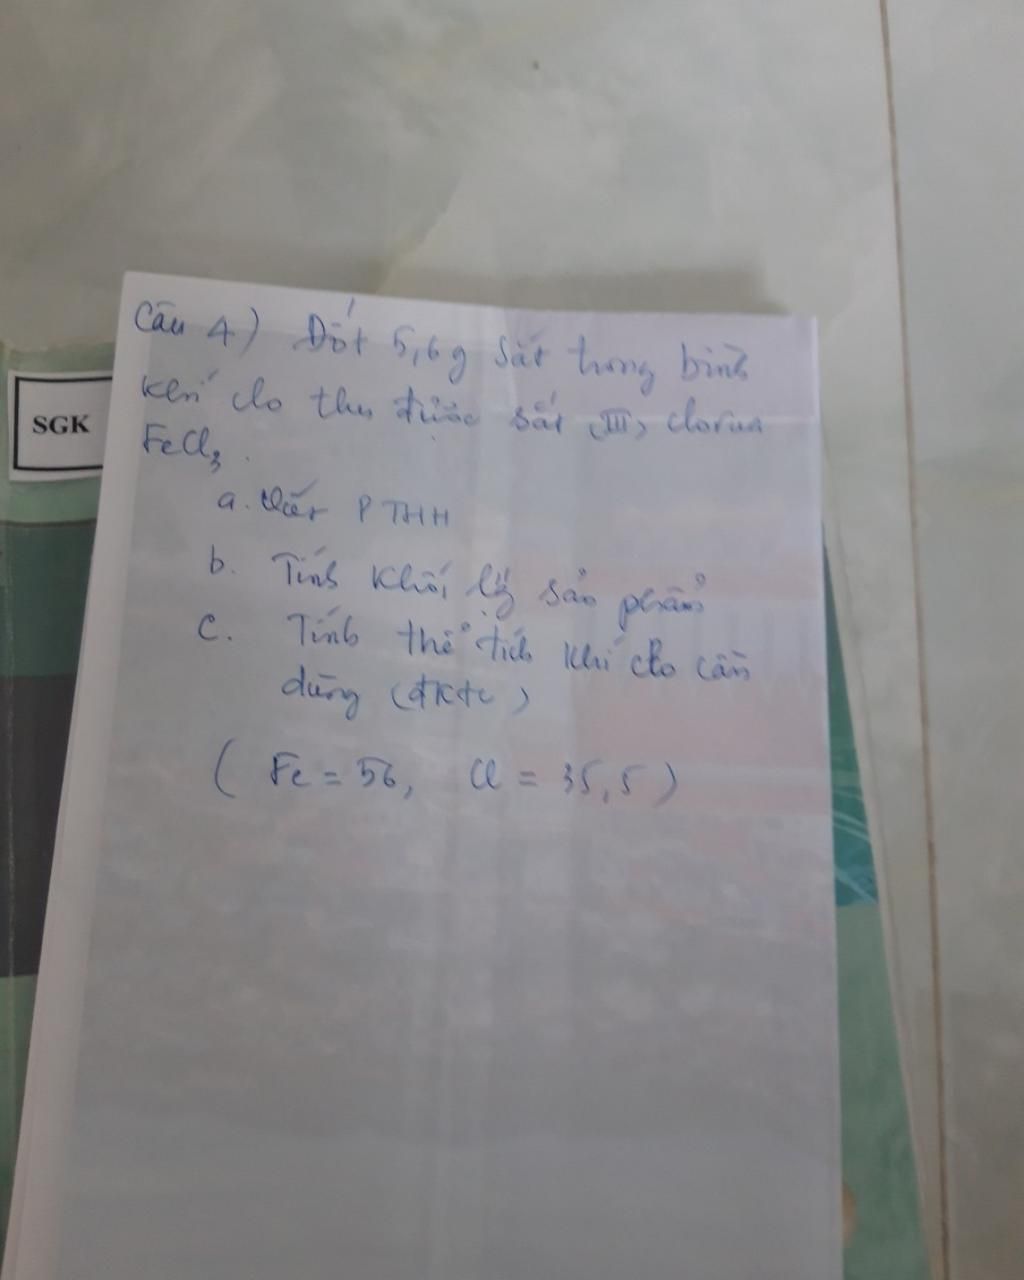 SGK
Câu 4) Đốt 5,6g sắt trong bình
khí clo thu được sắt (III) clorua
FeCl3.
a. Viết PTHH
b. Tính khối lg sản phẩm
c. Tính thể tích khí clo cần
dùng (đktc)
(Fe = 56, Cl = 35,5)